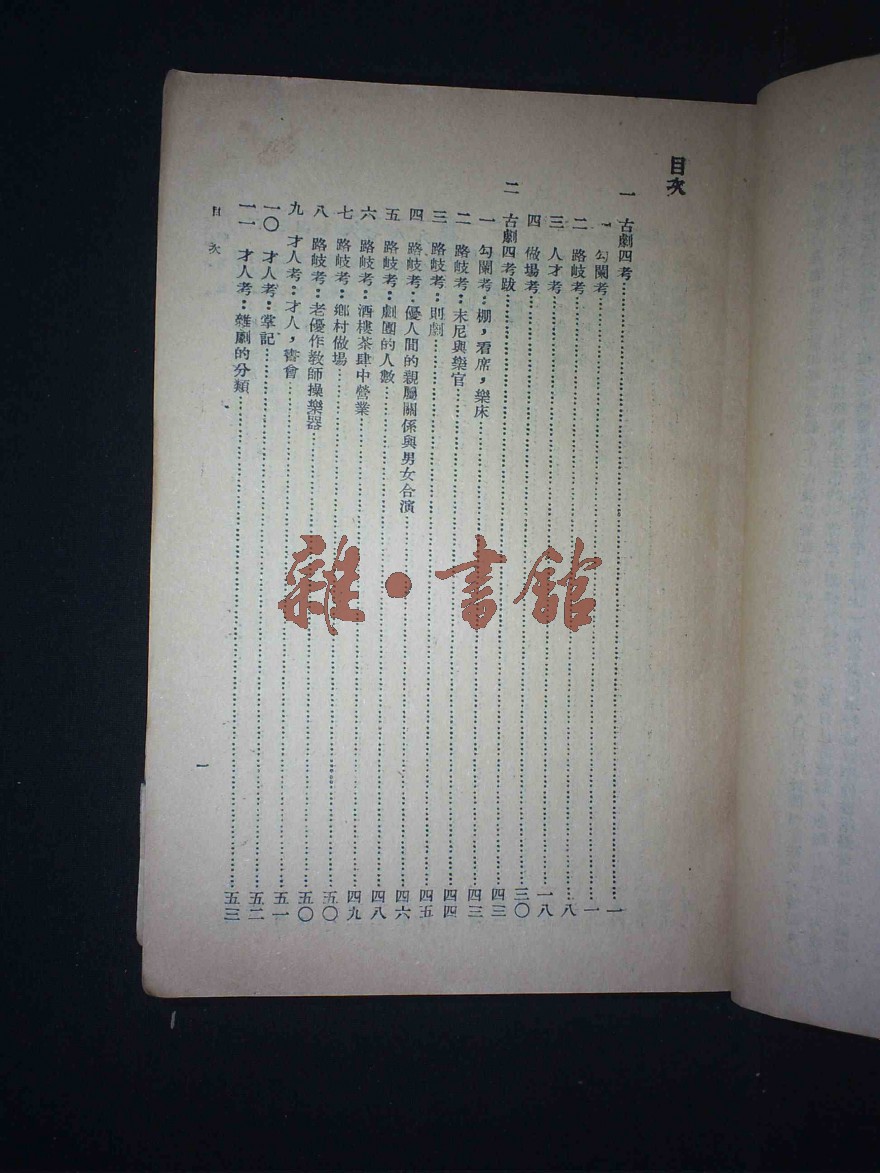 目次
一 古劇四考……一
一 勾闌考……一
二 路岐考……八
三 人才考……一八
四 做場考……三〇
二 古劇四考跋……四三
一 勾闌考：棚，看席，樂床……四三
二 路岐考：末尼與樂官……四四
三 路岐考：則劇……四五
四 路岐考：優人間的親屬關係與男女合演……四六
五 路岐考：劇團的人數……四八
六 路岐考：酒樓茶肆中營業……四九
七 路岐考：鄉村做場……五〇
八 路岐考：老優作教師操樂器……五〇
九 才人考：才人，書會……五一
一〇 才人考：掌記……五二
一一 才人考：雜劇的分類……五三
目次
一
雜·書館